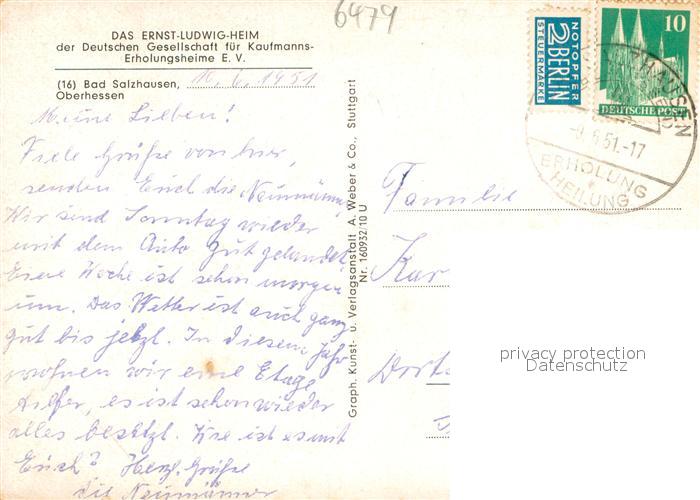 6479
DAS ERNST-LUDWIG-HEIM
der Deutschen Gesellschaft für Kaufmanns-
Erholungsheime E. V.
(16) Bad Salzhausen, 10.6.1951
Oberhessen
Meine Lieben!
Viele Grüße von hier,
senden Euch die Neumänner.
Wir sind Sonntag wieder
mit dem Auto gut gelandet.
Eine Woche ist schon morgen
um. Das Wetter ist auch ganz
gut bis jetzt. In diesem Jahr
wohnen wir eine Etage
höher, es ist schon wieder
alles besetzt. Wie ist es mit
Euch? Herzl. Grüße
die Neumänner
Graph. Kunst- u. Verlagsanstalt A. Weber & Co., Stuttgart
Nr. 160932/10 U
NOTOPFER
2 BERLIN
STEUERMARKE
10
DEUTSCHE POST
6.51.-17
ERHOLUNG
HEILUNG
Familie
Kar
Dort
privacy protection
Datenschutz